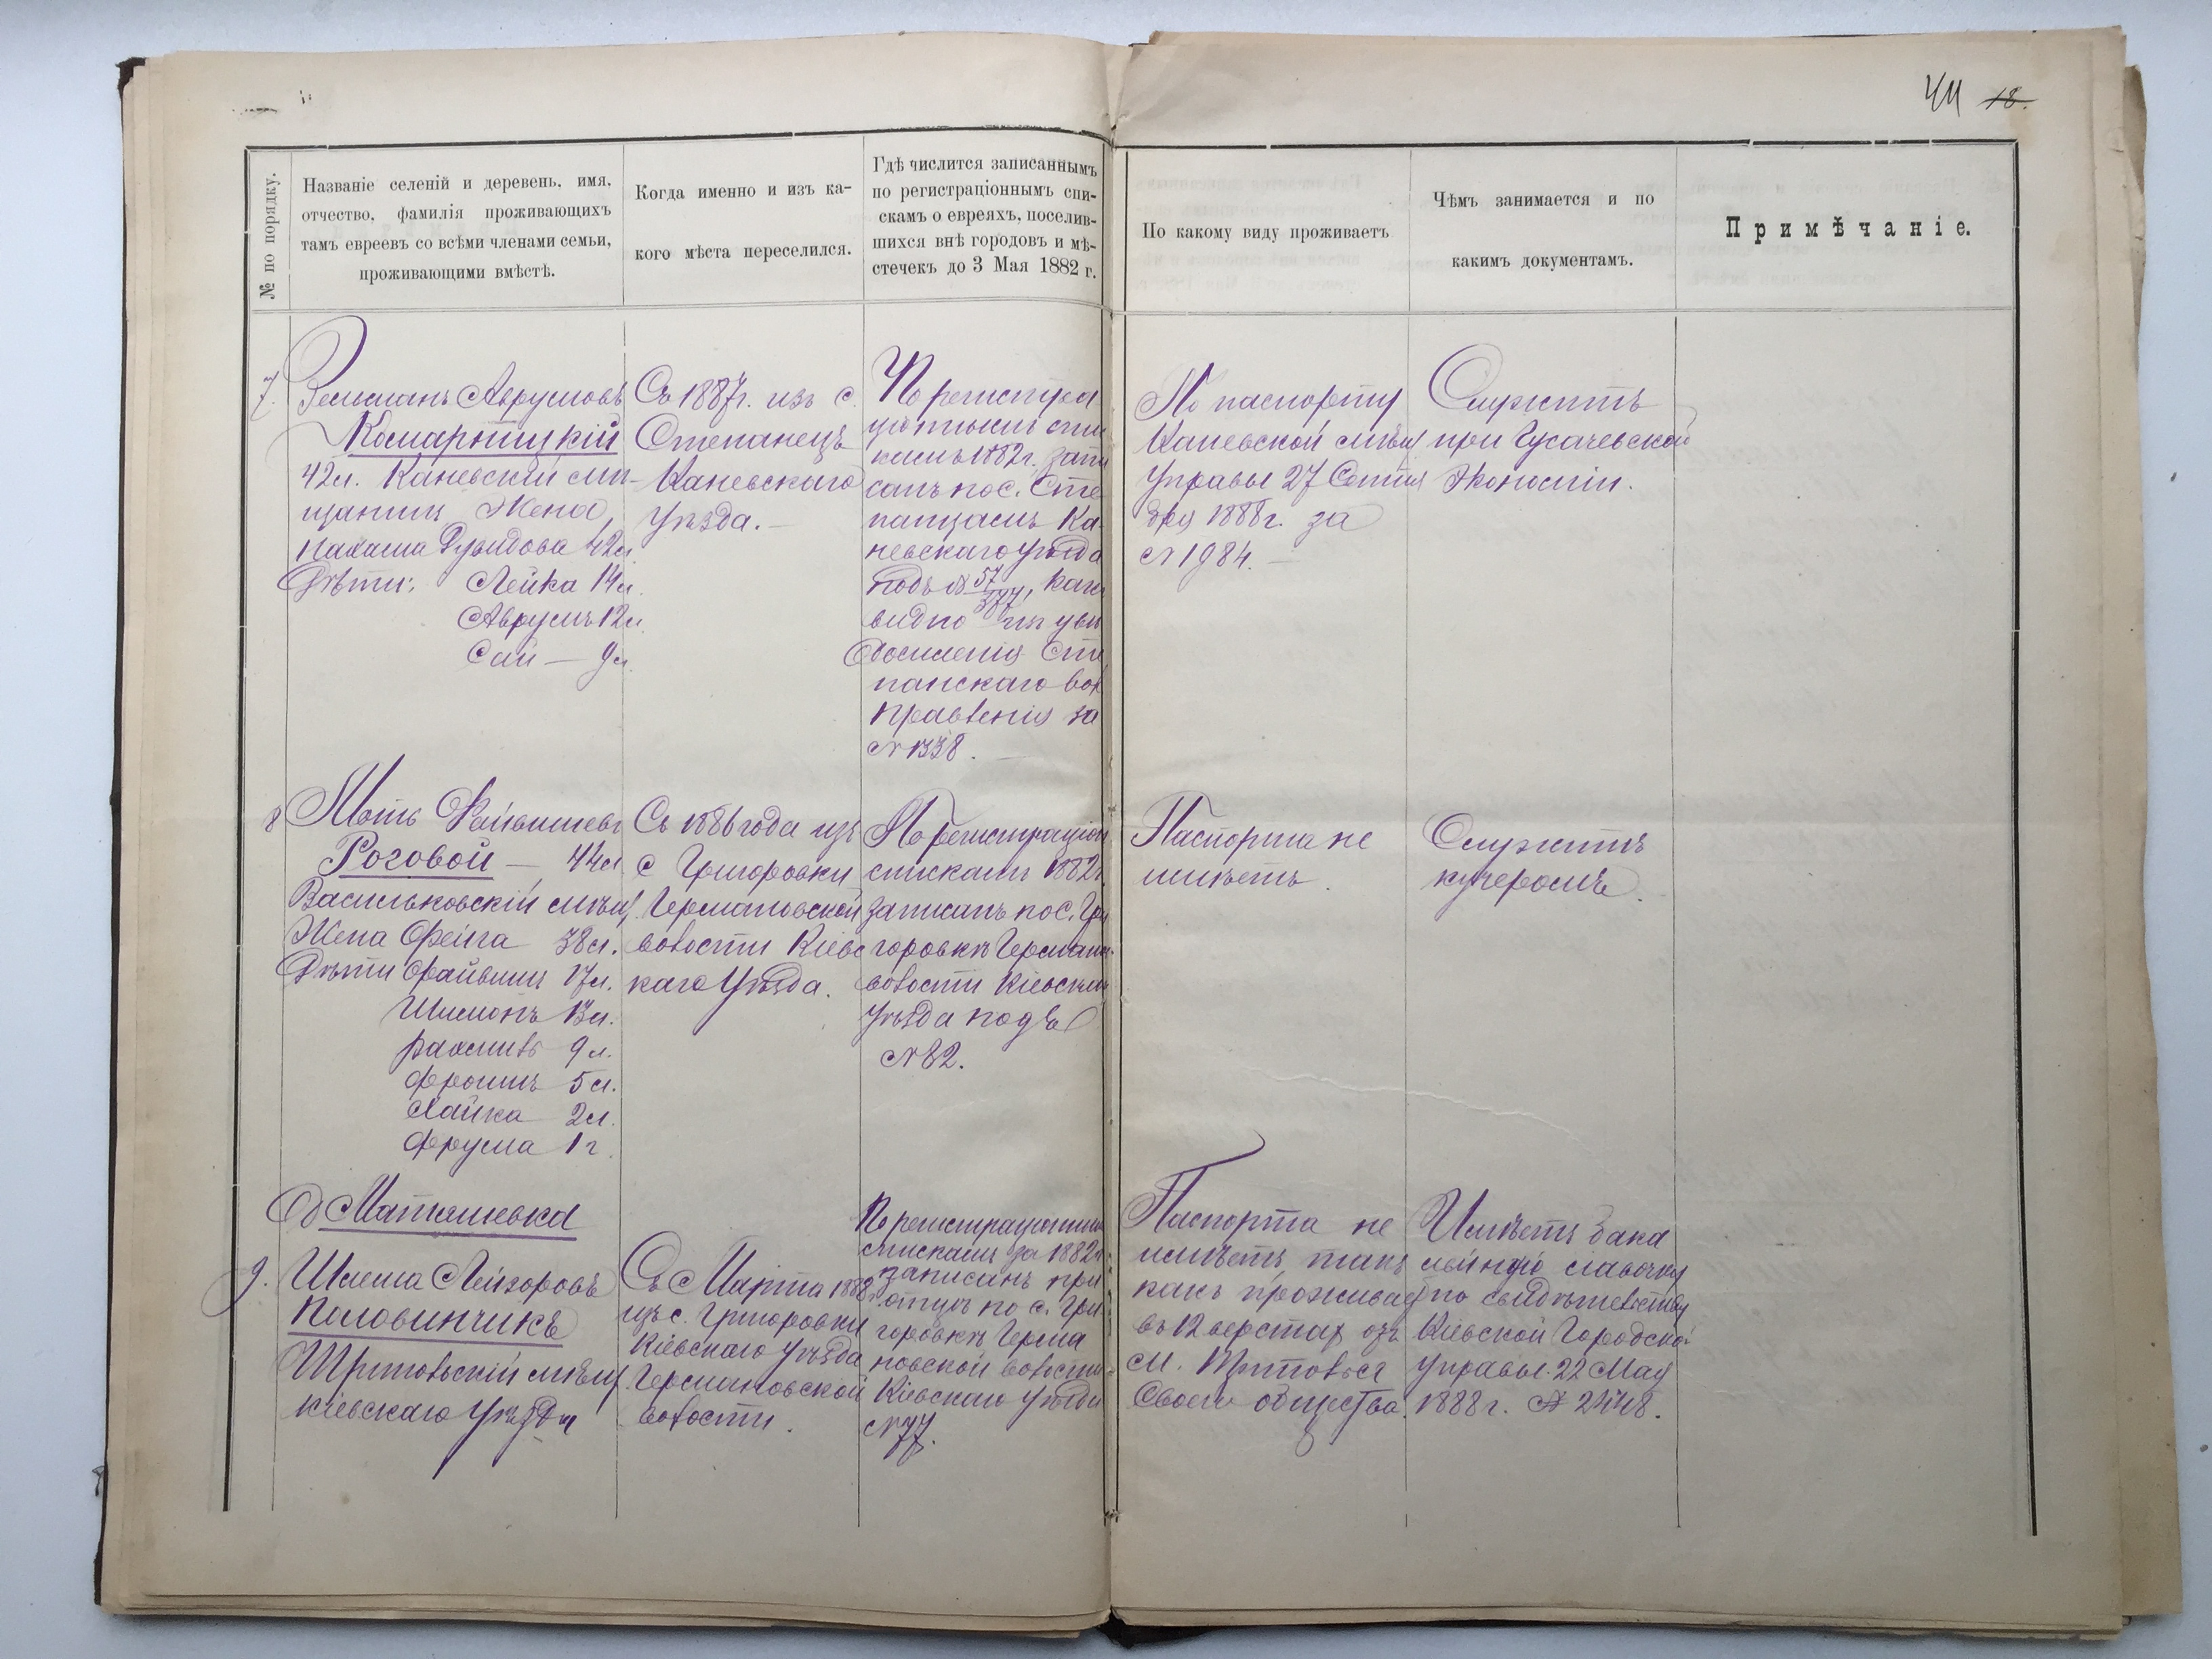 44 18.
№ по порядку.
Названіе селеній и деревень, имя,
отчество, фамилія проживающихъ
тамъ евреевъ со всѣми членами семьи,
проживающими вмѣстѣ.
Когда именно и изъ ка-
кого мѣста переселился.
Гдѣ числится записаннымъ
по регистраціоннымъ спи-
скамъ о евреяхъ, поселив-
шихся внѣ городовъ и мѣ-
стечекъ до 3 Мая 1882 г.
По какому виду проживаетъ
Чѣмъ занимается и по
какимъ документамъ.
Примѣчаніе.
7.
Зельманъ Аврумовъ
Комарницкій
42 л. Каневскій мѣ-
щанинъ Жена,
Дувидова 42 л
Дѣти: Лейка 14 л.
Аврумъ 12 л
Сай — 9 л
Съ 1887 г. изъ с.
Степанецъ
Каневскаго
уѣзда.—
По регистра
ціоннымъ спи
камъ 1882 г. запи
санъ по с. Сте
панцамъ Ка
невскаго уѣзда
подъ № 57/377, какъ
видно изъ уви
домленія Сте
панскаго вол
Правленія за
№ 1338.
По паспорту
Каневской мѣщ
Управы 27 Сентя
бря 1888 г. за
№ 1984.—
Служитъ
при Гусачевской
Экономіи.
8
Мотъ Файвишевъ
Роговой — 44 л
Васильковскій мѣщ
Жена Фейга 38 л.
Дѣти Файвишъ 17 л.
Шимонъ 13 л.
Рахмиль 9 л.
Фроимъ 5 л.
Хайка 2 л.
Фрума 1 г.
Съ 1886 года изъ
с Григоровки
Германовской
волости Кіевс
каго Уѣзда.
По регистраціон
спискамъ 1882 г.
записанъ по с. Гри
горовкѣ Герман.
волости Кіевскаго
уѣзда подъ
№ 82.
Паспорта не
имѣетъ.
Служитъ
кучеромъ.
Д Матяшевка
9.
Шлема Лейзоровъ
Половинчикъ
Ржищовскій мѣщ.
Кіевскаго уѣзда
Съ Марта 1882
изъ с. Григоровки
Кіевскаго уѣзда
Германовской
волости.
По регистраціоннымъ
спискамъ за 1882 г.
записанъ при
отцѣ по с. Гри
горовкѣ Герма
новской волости
Кіевскаго уѣзда
№ 77.
Паспорта не
имѣетъ, такъ
какъ проживаетъ
въ 12 верстах отъ
м.
Своего общества.
Имѣетъ бака
лейную лавочку
по свидѣтельству
Кіевской Городской
управы 22 Мая
1888 г. № 2448.